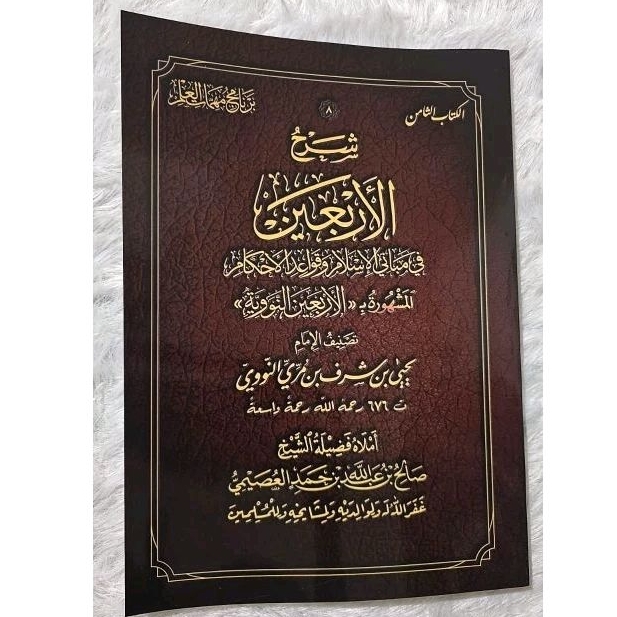 الكتاب الثامن
برنامج مهمات العلم
٨
شرح
الأربعين
في مباني الإسلام وقواعد الأحكام
المشهورة بـ «الأربعين النووية»
تصنيف الإمام
يحيى بن شرف بن مري النووي
ت ٦٧٦ رحمه الله رحمة واسعة
أملاه فضيلة الشيخ
صالح بن عبد الله بن حمد العصيمي
غفر الله له ولوالديه ولمشايخه وللمسلمين